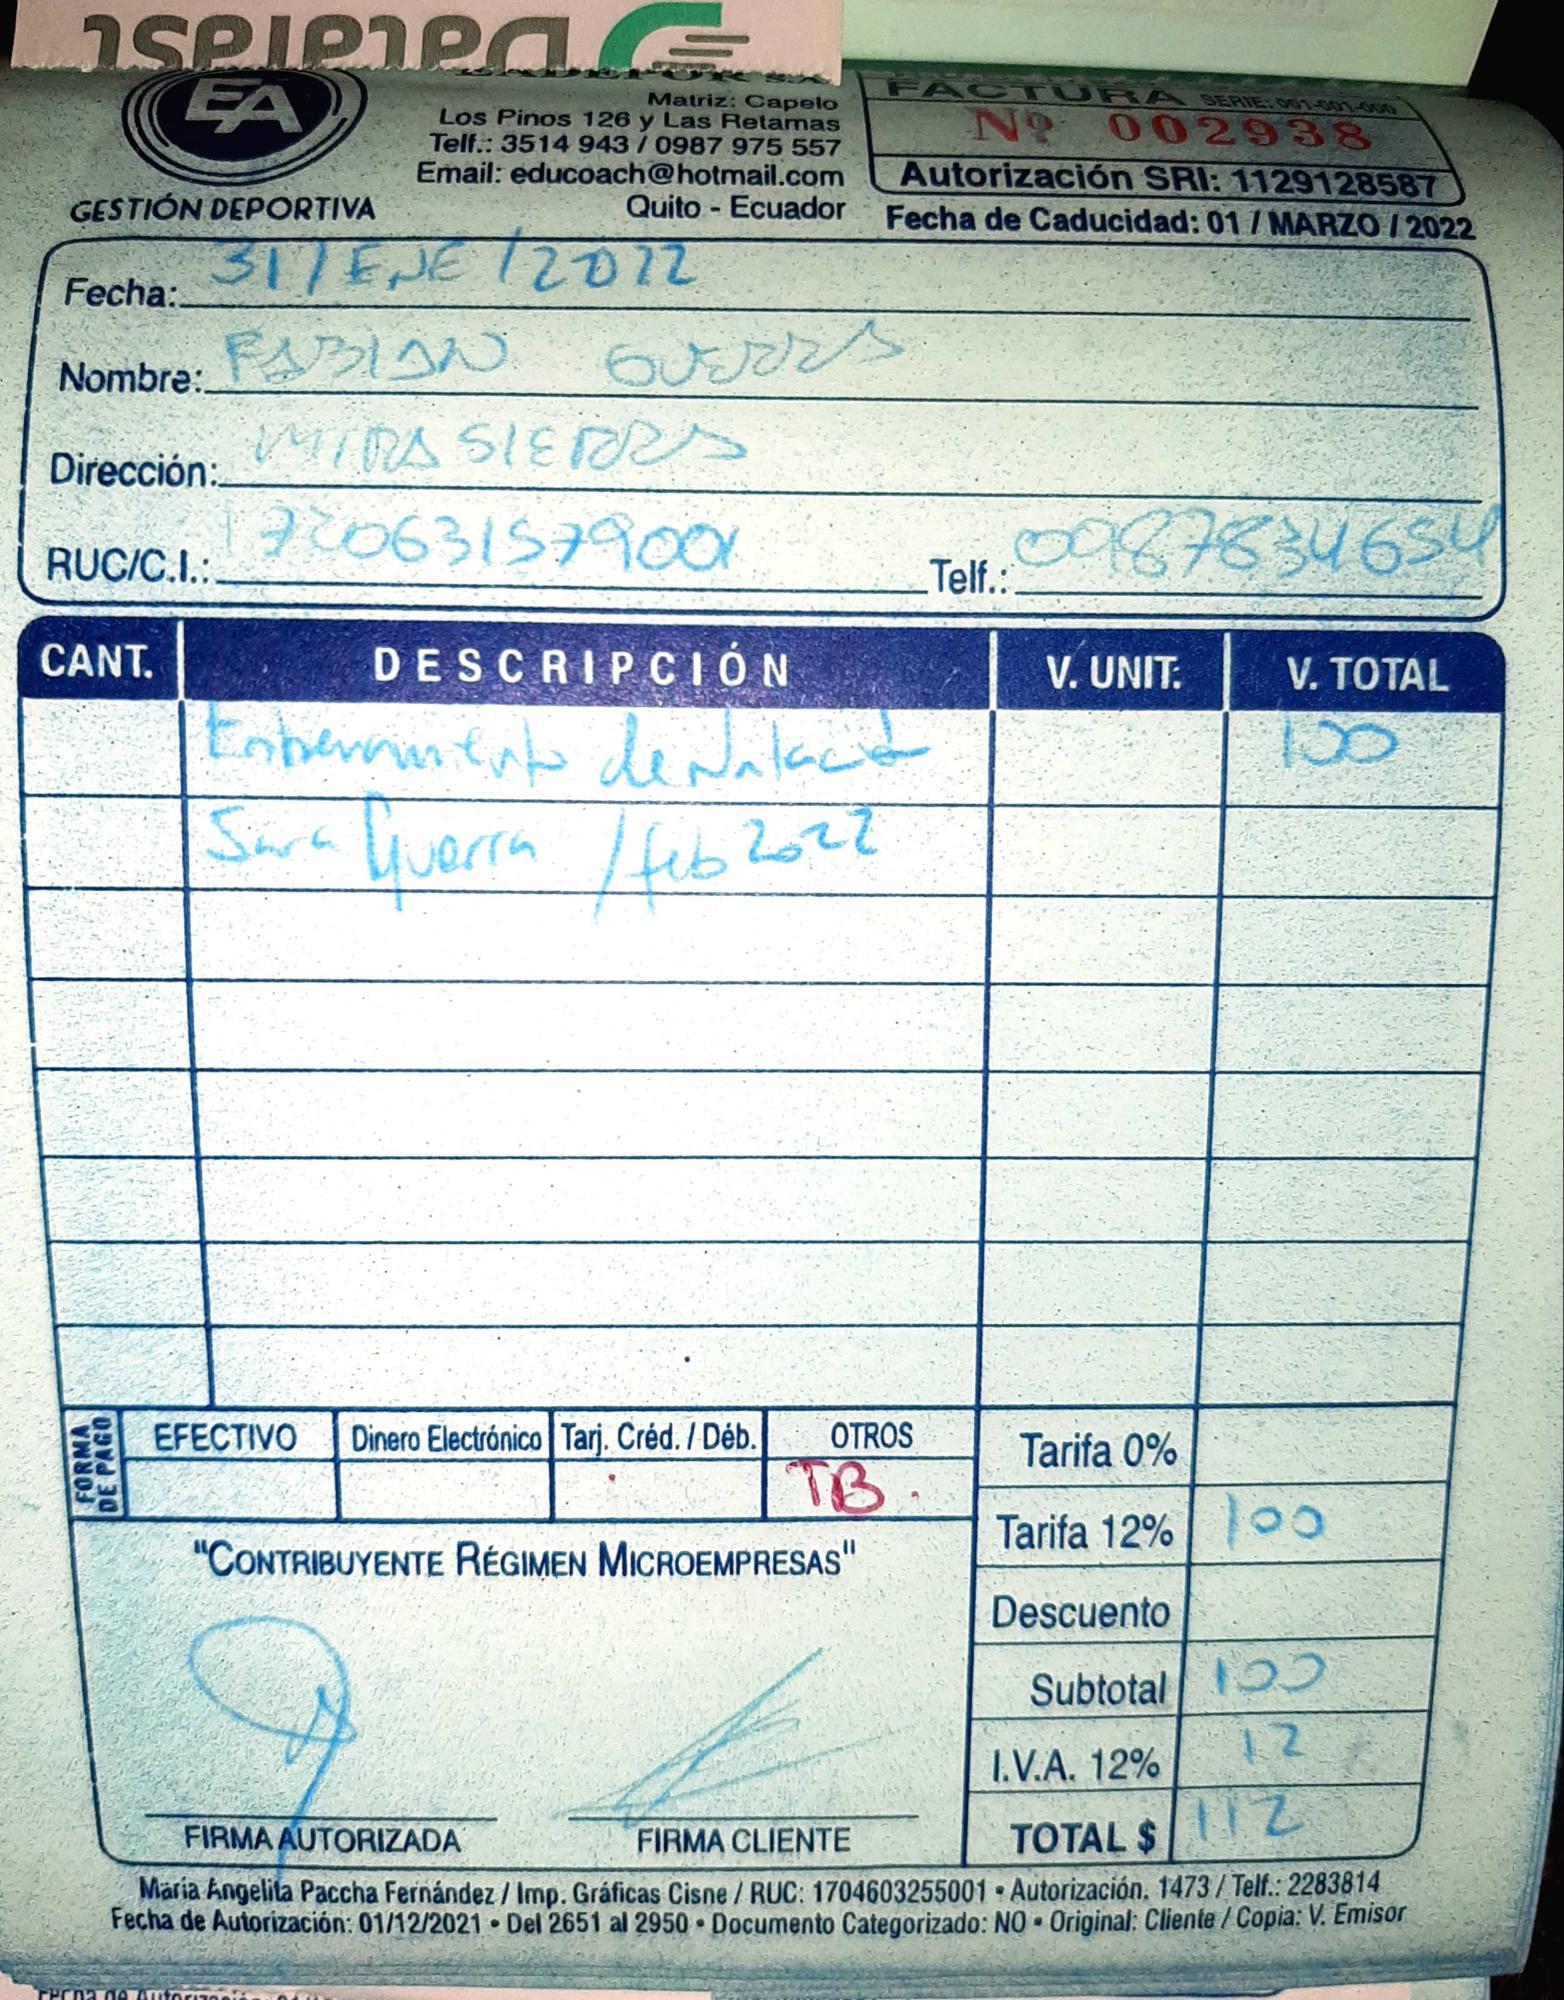 Datafast
EA
GESTIÓN DEPORTIVA
Matriz: Capelo
Los Pinos 126 y Las Retamas
Telf.: 3514 943 / 0987 975 557
Email: educoach@hotmail.com
Quito - Ecuador
FACTURA SERIE: 001-001-000
Nº 002938
Autorización SRI: 1129128587
Fecha de Caducidad: 01 / MARZO / 2022
Fecha: 31 / ENE / 2022
Nombre: FABIAN GUERRA
Dirección: MIRASIERRA
RUC/C.I.: 1720631579001 Telf.: 0987834654
CANT. DESCRIPCIÓN V. UNIT: V. TOTAL
Entrenamiento de Natación 100
Sara Guerra / feb 2022
FORMA DE PAGO
EFECTIVO Dinero Electrónico Tarj. Créd. / Déb. OTROS
TB.
Tarifa 0%
Tarifa 12% 100
Descuento
Subtotal 100
I.V.A. 12% 12
TOTAL $ 112
"CONTRIBUYENTE RÉGIMEN MICROEMPRESAS"
FIRMA AUTORIZADA FIRMA CLIENTE
María Angelita Paccha Fernández / Imp. Gráficas Cisne / RUC: 1704603255001 • Autorización. 1473 / Telf.: 2283814
Fecha de Autorización: 01/12/2021 • Del 2651 al 2950 • Documento Categorizado: NO • Original: Cliente / Copia: V. Emisor